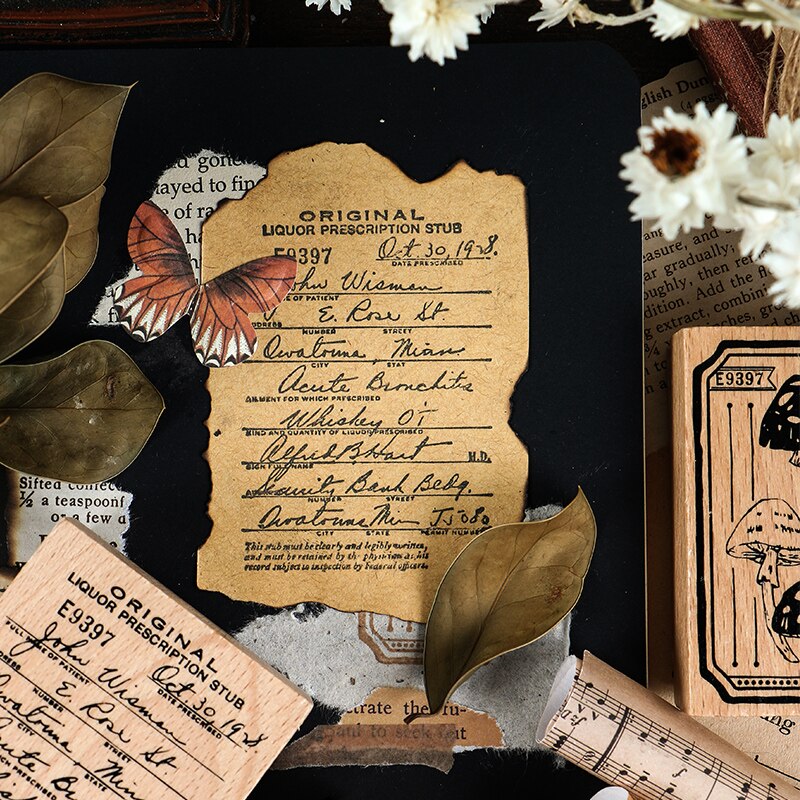 d gone
layed to fin
of ra
ha
ORIGINAL
LIQUOR PRESCRIPTION STUB
E9397 Oct. 30, 1928.
DATE PRESCRIBED
John Wisman
E OF PATIENT
E. Rose St.
ADDRESS NUMBER STREET
Owatonna, Minn
CITY STAT
Acute Bronchitis
AILMENT FOR WHICH PRESCRIBED
Whiskey O
KIND AND QUANTITY OF LIQUOR PRESCRIBED
Alfred B. Hart M.D.
SIGN FULL NAME
Security Bank Bldg.
NUMBER STREET
Owatonna Minn
CITY STATE PERMIT NUMBER
This stub must be clearly and legibly written,
and must be retained by the physician as his
record subject to inspection by Federal officers.
Sifted confec
½ a teaspoonf
or a few d
ORIGINAL
LIQUOR PRESCRIPTION STUB
E9397 Oct. 30, 1928
DATE PRESCRIBED
John Wisman
FULL NAME OF PATIENT
E Rose St.
DRESS NUMBER STREET
Owatonna, Minn
CITY STATE
cute Br
WHICH PRESCRIBED
trate the fu-
and to seek out
glish Dum
easure, and
ar gradually;
oughly, then re
dition. Add the
g extract, combini
E9397
ing